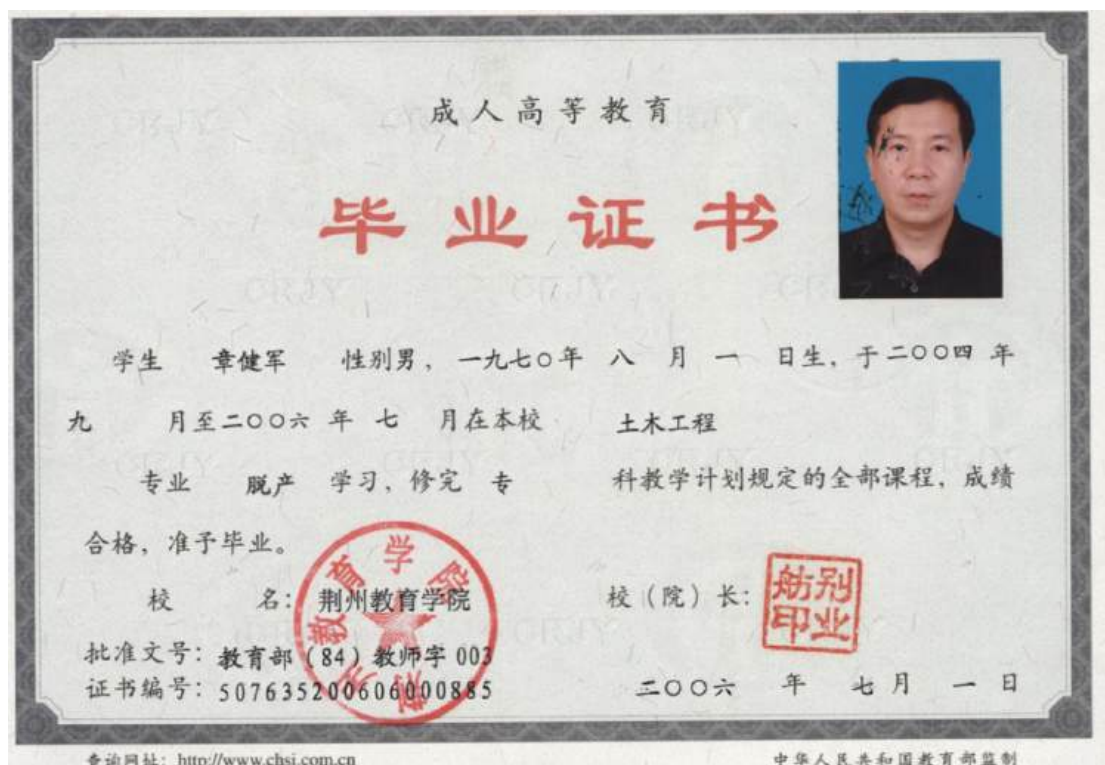 成人高等教育
毕业证书
学生 章健军 性别男，一九七〇年 八 月 一 日生，于二〇〇四 年
九 月至二〇〇六 年 七 月在本校 土木工程
专业 脱产 学习，修完 专 科教学计划规定的全部课程，成绩
合格，准予毕业。
校 名：荆州教育学院 校（院）长：
别业舫印
批准文号：教育部（84）教师字 003
证书编号：507635200606000885 二〇〇六 年 七月 一 日
查询网址：http://www.chsi.com.cn 中华人民共和国教育部监制